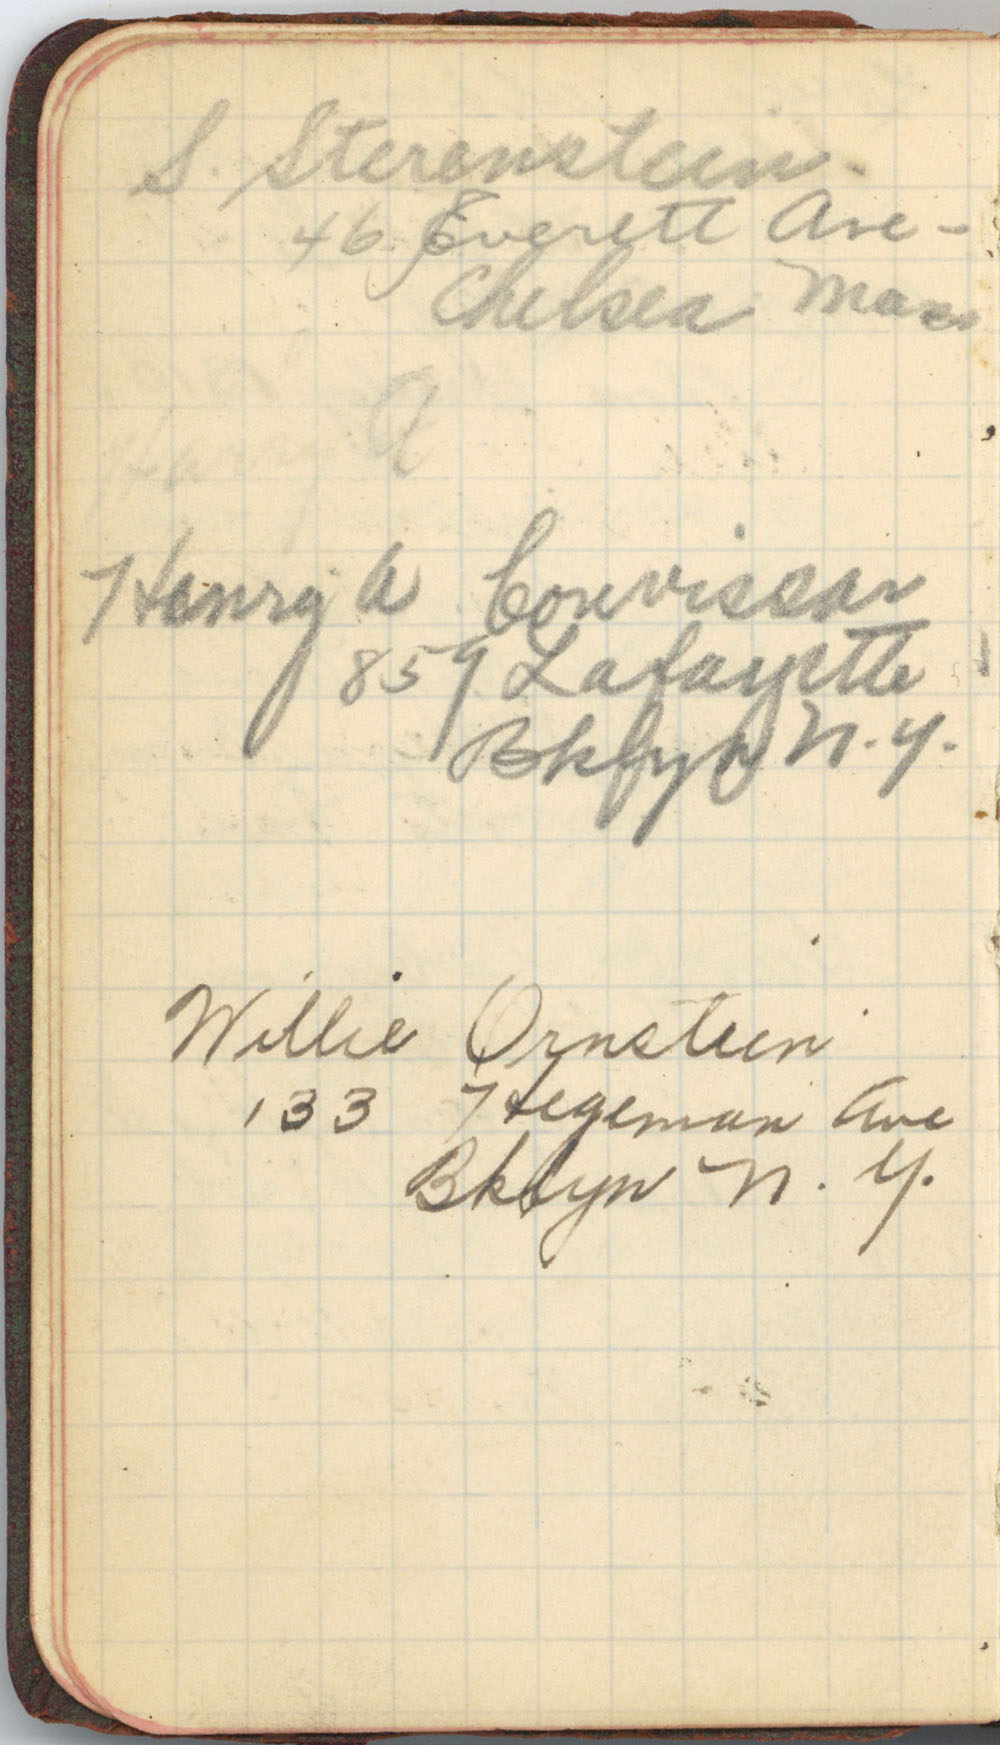 S. Sterenstein
46 Everett Ave -
Chelsea Mass
A
Henry A Convissar
859 Lafayette
Bklyn N.Y.
Willie Ornstein
133 Hegeman Ave
Bklyn N. Y.